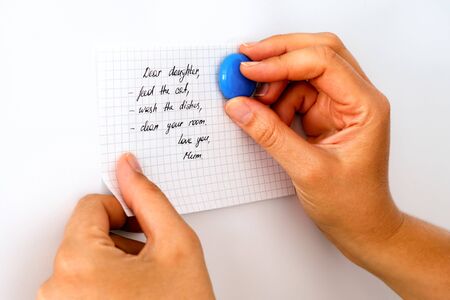 Dear daughter,
- feed the cat,
- wash the dishes,
- clean your room.
love you,
Mum